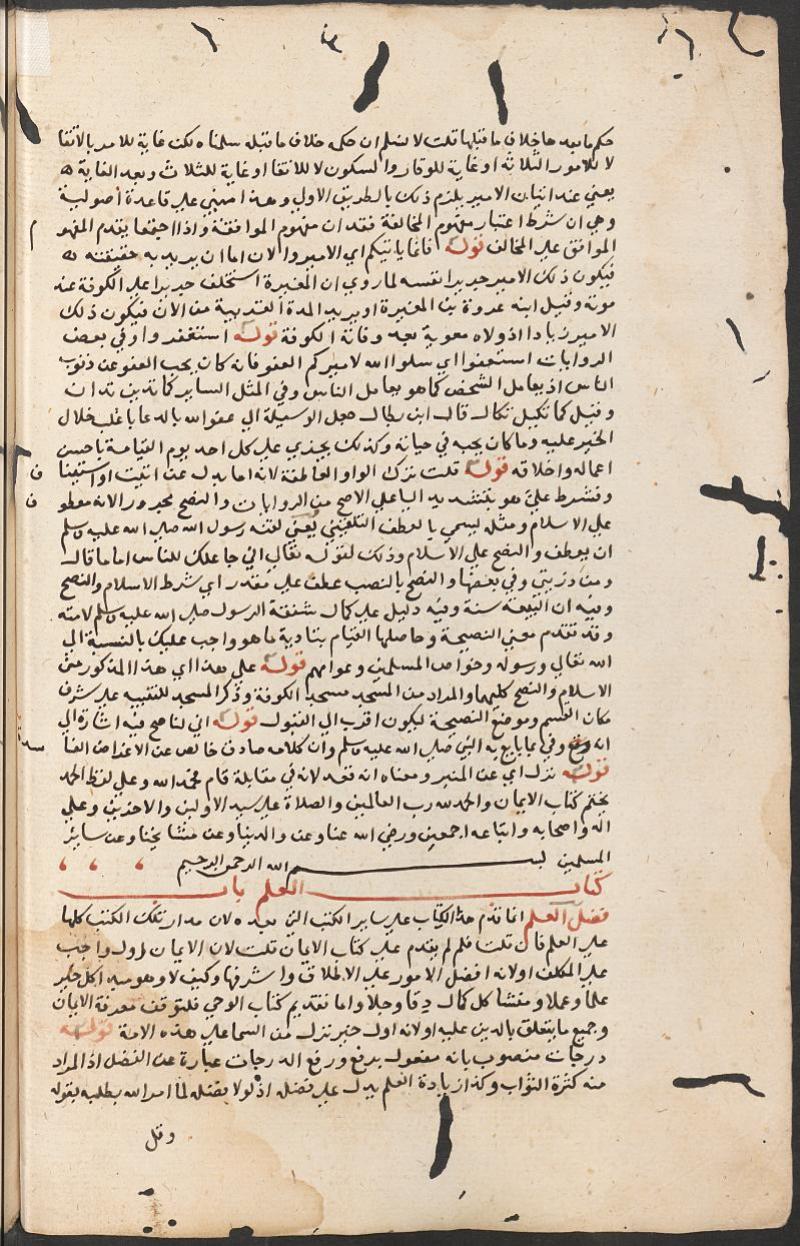 حكم ما بعدها خلاف ما قبلها قلت لا نسلم ان حكمه خلاف ما قبله سلمنا ه لكنه غاية للامر بالاتقا
لا للامور الثلاثة او غاية للوقار والسكون لا للاتقا او غاية للثلاث وبعد الغاية ه
يعني عند اتيان الامير يلزم ذلك بالطريق الاولي وهذا مبني علي قاعدة اصولية
وهي ان شرط اعتبار مفهوم المخالفة فقدان مفهوم الموافقة واذا اجتمعا يقدم المفهوم
الموافق علي المخالف قوله فانما ياتيكم اي الامير والان اما ان يريد به حقيقته
فيكون ذلك الامير جريرا نفسه لما روي ان المغيرة استخلف جريرا علي الكوفة عند
موته وقيل ابنه عروة بن المغيرة او يريد المدة القريبة من الان فيكون ذلك
الامير زيادا اذ ولاه معوية بعد وفاته الكوفة قوله استغفروا وفي بعض
الروايات استعفوا اي سلوا الله لاميركم العفو فانه كان يحب العفو عن ذنوب
الناس اذ يعامل الشخص كما هو يعامل الناس وفي المثل الساير كما تدين تدان
وقيل كما تكيل تكال قال ابن بطال جعل الوسيلة الي عفو الله بالدعا باغلب خلال
الخير عليه وما كان يحبه في حياته وكذلك يجزي علي كل احد يوم القيامة باحسن
اعماله واخلاقه قوله قلت بترك الواو العاطفة لانه اما بدل عن اتيت او استينا ف
وشرط عليّ هو بتشديد اليا علي الاصح من الروايات والنصح مجرور لانه معطو ف
علي الاسلام ومثله يسمي بالعطف التلقيني يعني لقنه رسول الله صلي الله عليه وسلم
ان يعطف والنصح علي الاسلام وذلك لقوله تعالي اني جاعلك للناس اماما قال
ومن ذريتي وفي بعضها والنصح بالنصب عطف علي مقدر اي شرط الاسلام والنصح
وفيه ان البيعة سنة وفيه دليل علي كمال شفقة الرسول صلي الله عليه وسلم لامته
وقد تقدم معني النصيحة وحاصلها القيام بتادية ما هو واجب عليك بالنسبة الي
الله تعالي ورسوله وخواص المسلمين وعوامهم قوله علي هذا اي هذا المذكور من
الاسلام والنصح كليهما والمراد من المسجد مسجد الكوفة وذكر المسجد للتنبيه علي شرف
مكان القسم وموضع النصيحة ليكون اقرب الي القبول قوله اني لناصح فيه اشارة الي
انه وفي بما بايع به النبي صلي الله عليه وسلم وان كلامه صادق خالص عن الاغراض الفا سدة
قوله نزل اي عن المنبر ومعناه انه قعد لانه في مقابلة قام فحمد الله وعلي لفظ الحمد
نختم كتاب الايمان والحمد لله رب العالمين والصلاة علي سيد الاولين والاخرين وعلي
اله واصحابه واتباعه اجمعين ورضي الله عنا وعن والدينا وعن مشائخنا وعن سائر
المسلمين بسم الله الرحمن الرحيم
كتاب العلم باب
فضل العلم انما قدم هذا الكتاب علي ساير الكتب التي بعده لان مدار تلك الكتب كلها
علي العلم فان قلت فلم لم يقدم علي كتاب الايمان قلت لان الايمان اول واجب
علي المكلف او لانه افضل الامور علي الاطلاق واشرفها وكيف لا وهو مبدا كل خير
علما وعملا ومنشا كل كمال دقا وجلا واما تقديم كتاب الوحي فلتوقف معرفة الايمان
وجميع ما يتعلق بالدين عليه او لانه اول خبر نزل من السما علي هذه الامة قوله
درجات منصوب بانه مفعول يرفع ورفع الدرجات عبارة عن الفضل اذ المراد
منه كثرة الثواب وكذا زيادة العلم يدل علي فضله اذ لولا فضله لما امر الله بطلبه بقوله
وقل